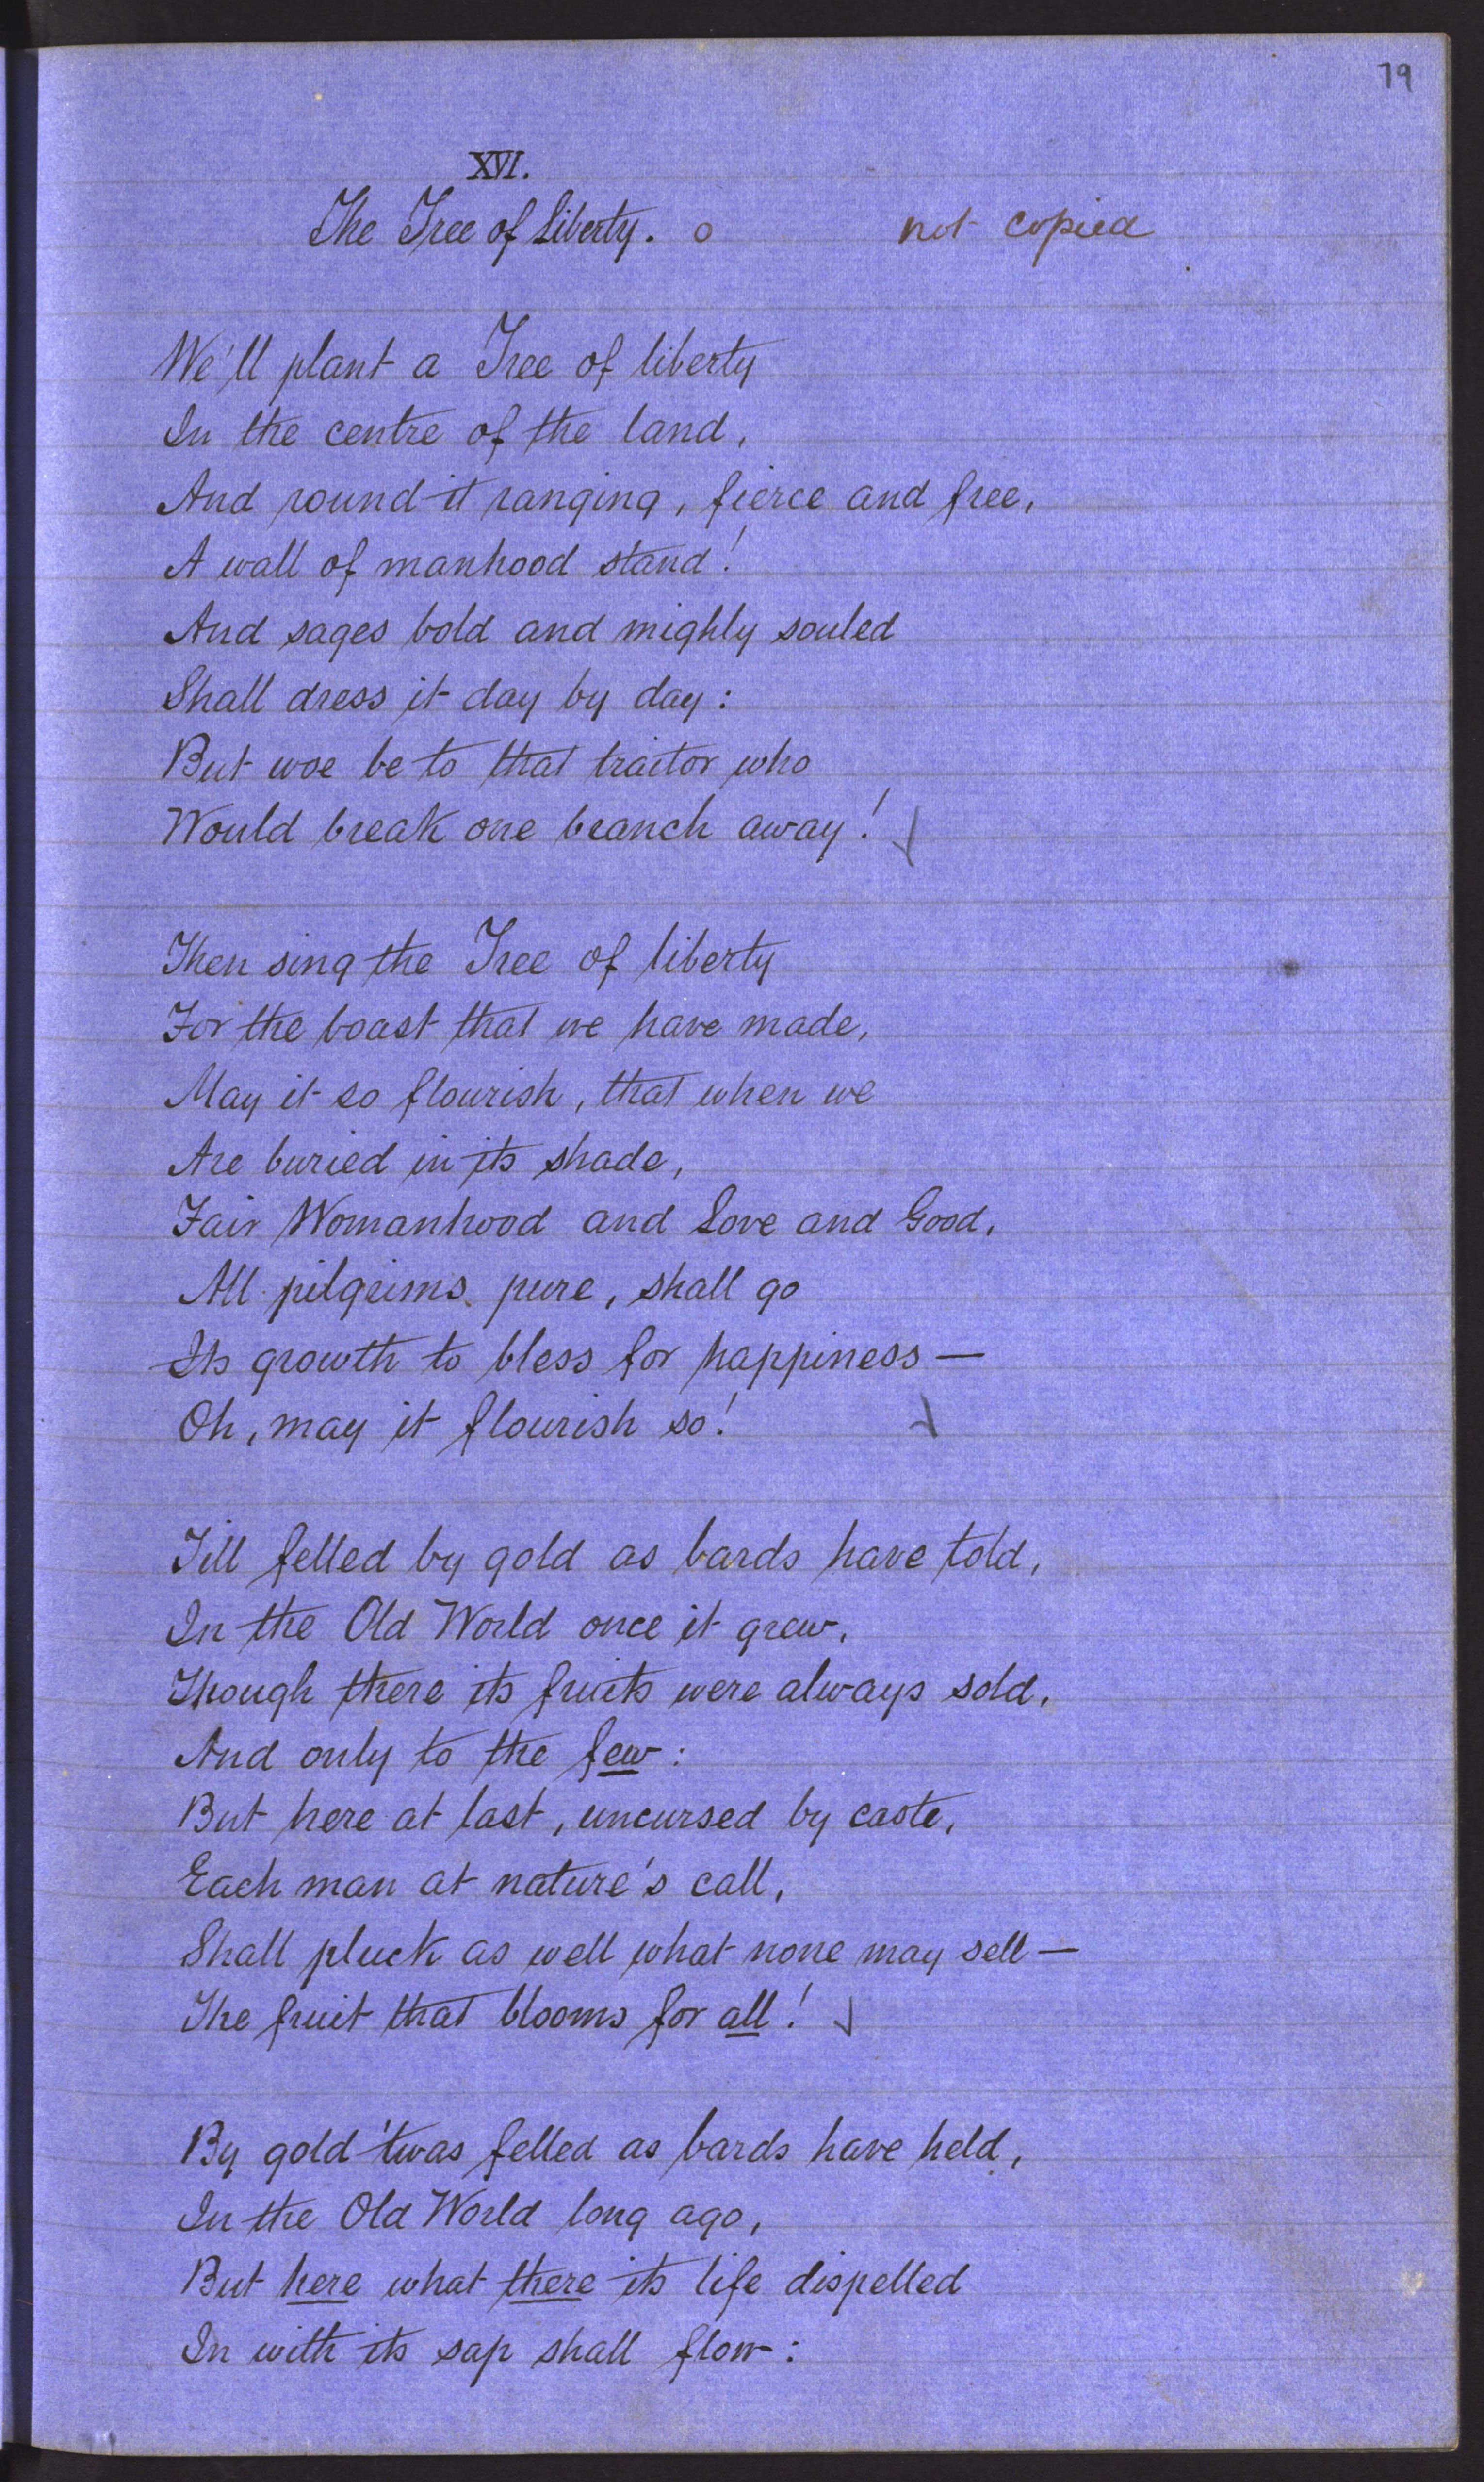 79
XVI.
The Tree of Liberty. o not copied
We'll plant a Tree of liberty
In the centre of the land,
And round it ranging, fierce and free,
A wall of manhood stand!
And sages bold and mighly souled
Shall dress it day by day:
But woe be to that traitor who
Would break one branch away!
Then sing the Tree of liberty
For the boast that we have made,
May it so flourish, that when we
Are buried in its shade,
Fair Womanhood and Love and Good,
All pilgrims pure, shall go
Its growth to bless for happiness —
Oh, may it flourish so!
Till felled by gold as bards have told,
In the Old World once it grew,
Though there its fruits were always sold,
And only to the few:
But here at last, uncursed by caste,
Each man at nature's call,
Shall pluck as well what none may sell —
The fruit that blooms for all!
By gold 'twas felled as bards have held,
In the Old World long ago,
But here what there its life dispelled
In with its sap shall flow: